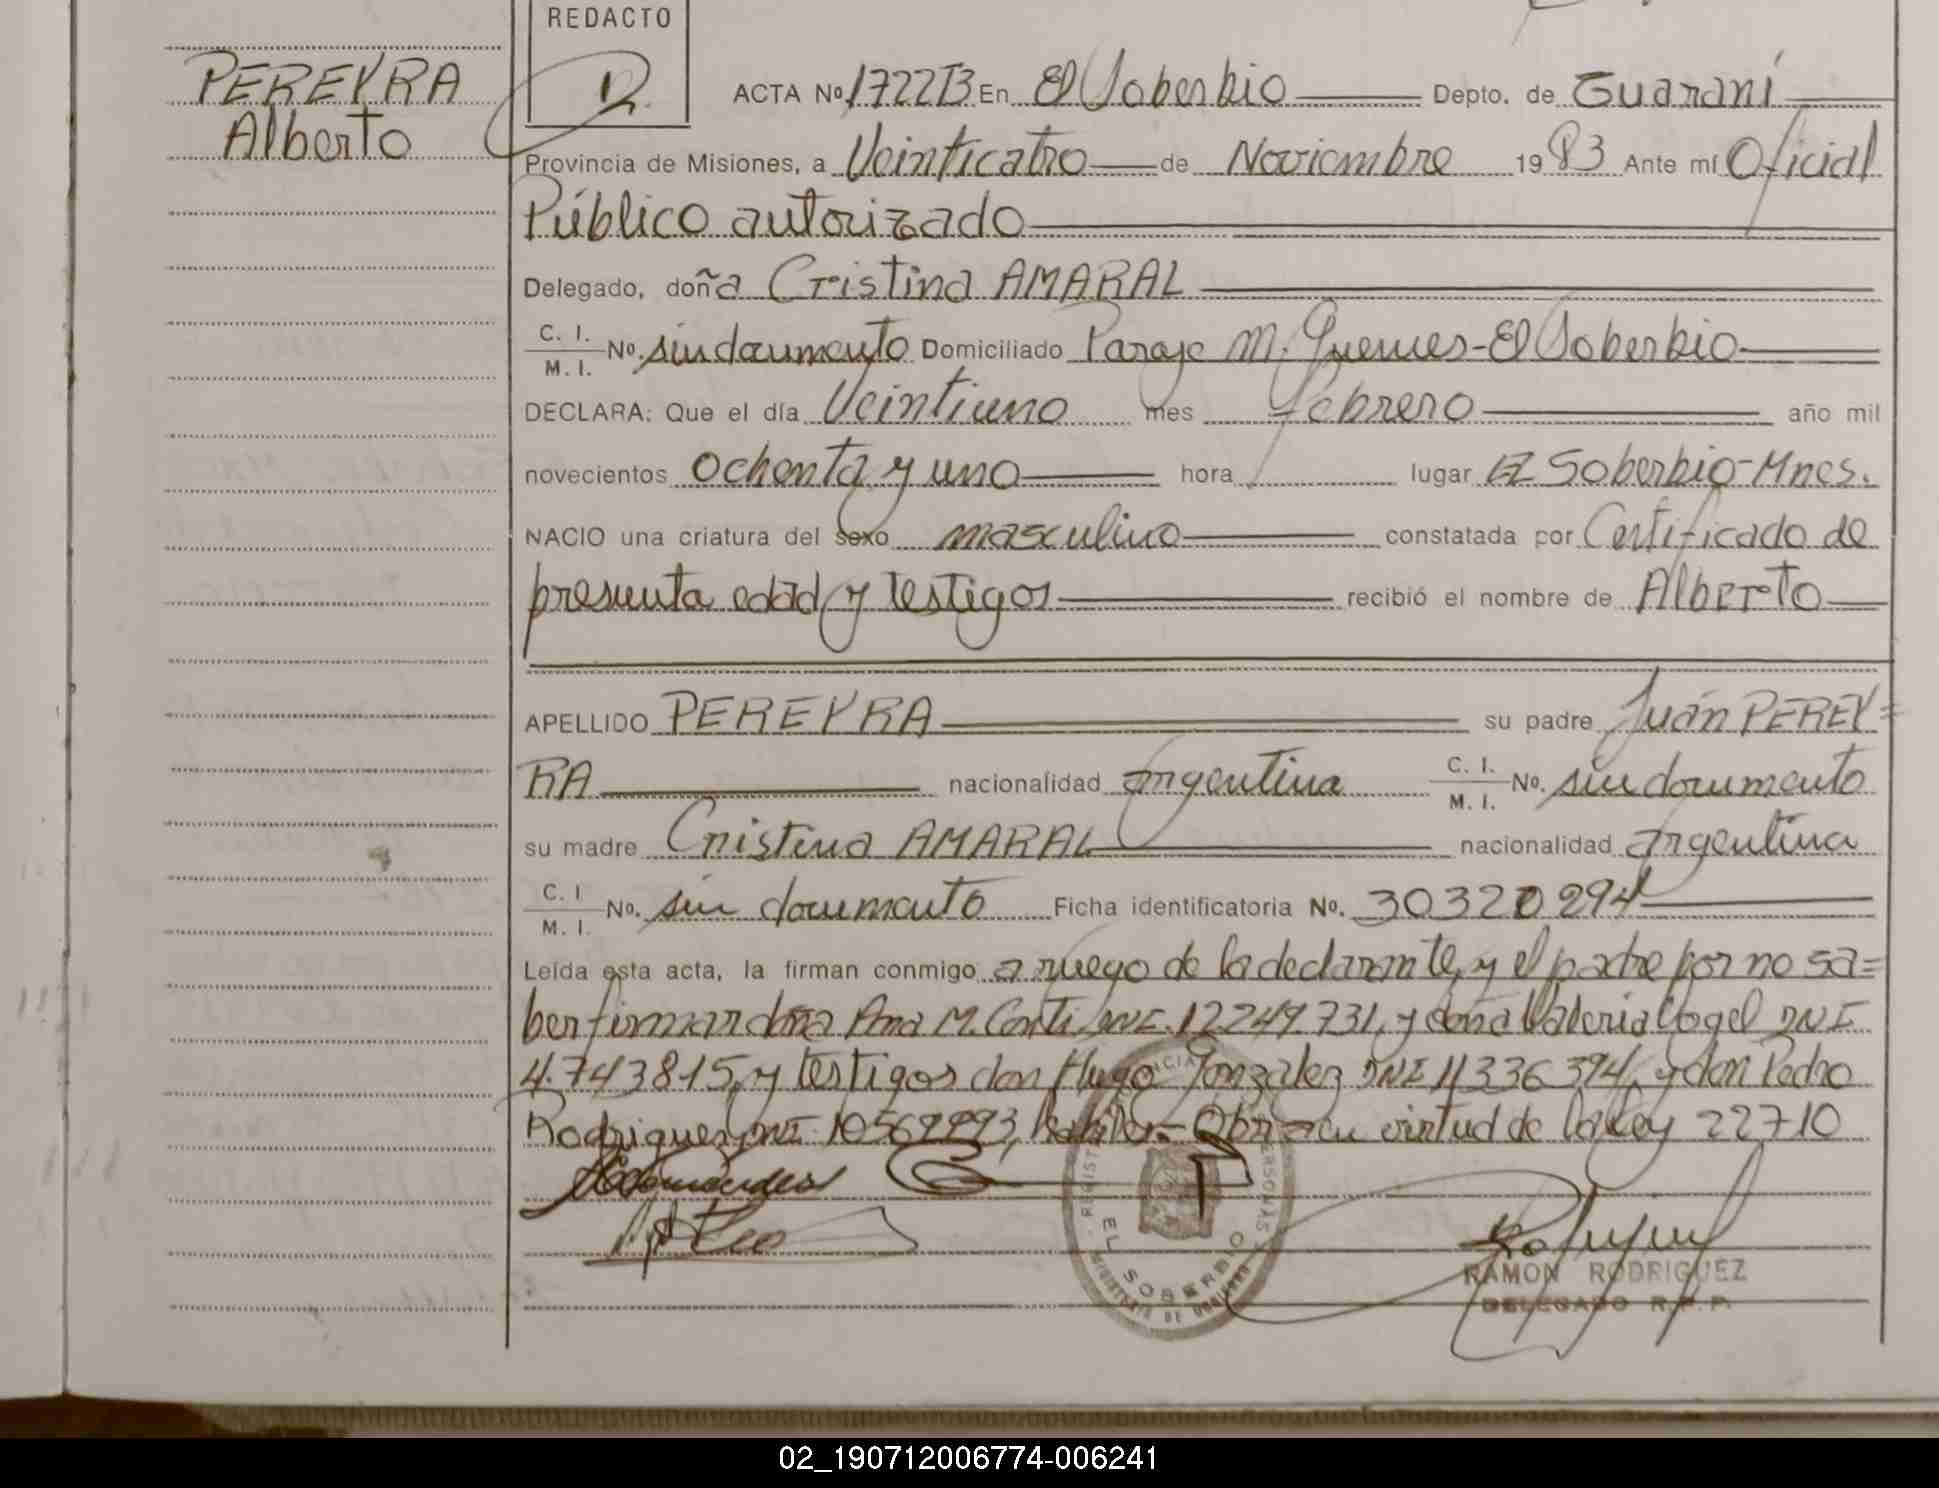 REDACTO
PEREYRA
Alberto
ACTA Nº 1722TB En El Soberbio Depto. de Guaraní
Provincia de Misiones, a Veinticatro de Noviembre 1983 Ante mí Oficial
Público autorizado
Delegado, doña Cristina AMARAL
C. I.
M. I. No. sin documento Domiciliado Paraje M. Guemes-El Soberbio
DECLARA: Que el día Veintiuno mes Febrero año mil
novecientos ochenta y uno hora lugar El Soberbio-Mnes.
NACIO una criatura del sexo masculino constatada por Certificado de
presunta edad y testigos recibió el nombre de Alberto
APELLIDO PEREYRA su padre Juán PEREY=
RA nacionalidad argentina C. I.
M. I. No. sin documento
su madre Cristina AMARAL nacionalidad argentina
C. I
M. I. No. sin documento Ficha identificatoria No. 30320294
Leída esta acta, la firman conmigo a ruego de la declarante y el padre por no sa=
ber firmar doña Ana M. Conti DNI. 12247.731, y doña Valeria Vogel DNI
4.743815, y testigos don Hugo Gonzalez DNI 11336394, y don Pedro
Rodriguez DNI 10562993, en virtud de la Ley 22710
EL SOBERBIO
RAMON RODRIGUEZ
DELEGADO R.P.P.
02_190712006774-006241